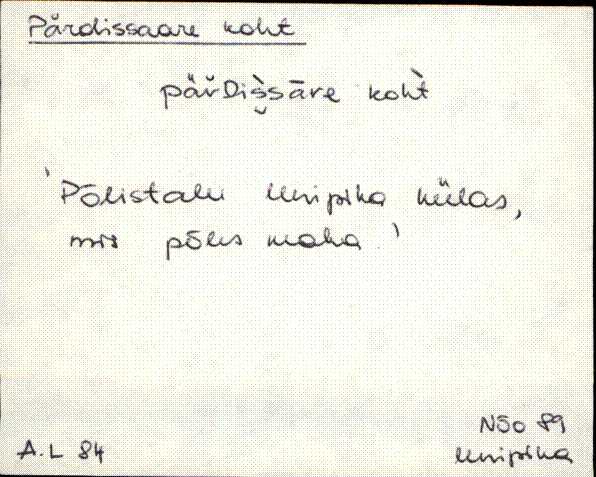 Pärdissaare koht
pärDi̮s̀sāre koh̀t
'Põlistalu Unipiha külas,
mis põles maha.'
NÕo 89
A.L 84
Unipiha